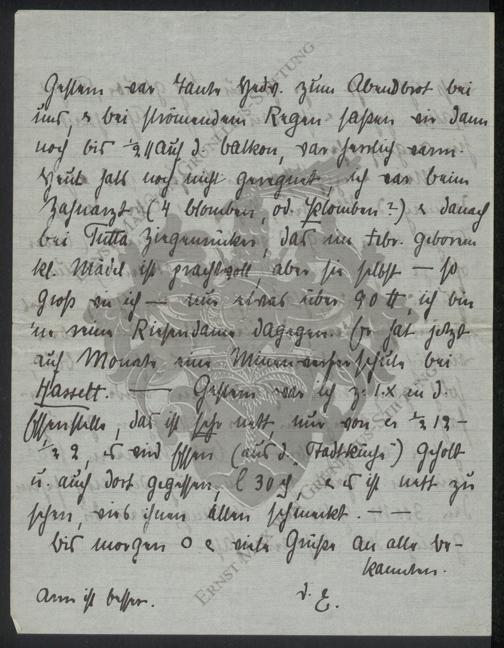 Gestern war Tante Hedw. zum Abendbrot bei
uns, & bei strömendem Regen saßen wir dann
noch bis ½ 11 auf d. Balkon, war herrlich warm.
Heut hats noch nicht geregnet, ich war beim
Zahnarzt (4 Blomben, od. Plomben?) & danach
bei Tutta Ziegenrücker, das im Febr. geborene
kl. Mädel ist prachtvoll, aber sie selbst — so
groß wie ich — nur etwas über 90 ℔, ich bin
'ne reine Riesendame dagegen. Er hat jetzt
auf Monate eine Minenwerferschule bei
Hasselt. — Gestern war ich z. 1. x in d.
Essenstelle, das ist sehr nett, nur von ½ 12 –
½ 2, es wird Essen (aus d. „Stadtküche“) geholt
u. auch dort gegessen, 30 , & es ist nett zu
sehen, wies ihnen allen schmeckt. — —
Bis morgen & viele Grüße an alle Be-
kannten.
Anni ist besser.
d. E.
ERNST MAX GRUNELIUS-STIFTUNG